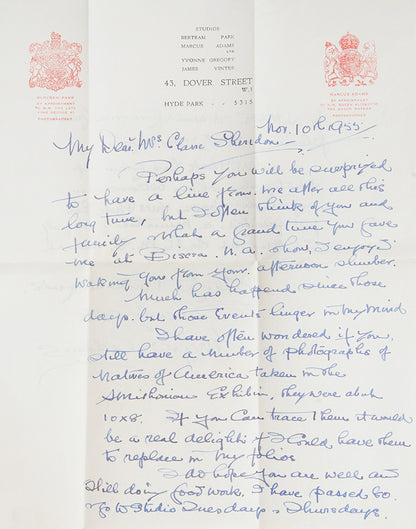 STUDIOS
BERTRAM PARK
MARCUS ADAMS
AND
YVONNE GREGORY
JAMES VINTER
43, DOVER STREET
W.1
HYDE PARK 5315
BERTRAM PARK
BY APPOINTMENT
TO H.M. THE LATE
KING GEORGE VI
PHOTOGRAPHER
MARCUS ADAMS
BY APPOINTMENT
TO H.M. QUEEN ELIZABETH
THE QUEEN MOTHER
PHOTOGRAPHER
Nov. 10th 1955
My Dear Mrs Clare Sheridan
Perhaps you will be surprized
to have a line from me after all this
long time, but I often think of you and
family what a grand time you gave
me at I enjoyed
waking you from your afternoon slumber.
Much has happend since those
days. but those Events linger in my mind
I have often wondered if you
still have a number of photographs of
Natives of America taken in the
they were abut
10x8. If you Can trace them it would
be a real delight if I Could have them
to replace in my folios
I do hope you are well and
still doing good work. I have passed 80.
go to Studio Tuesdays & Thursdays.